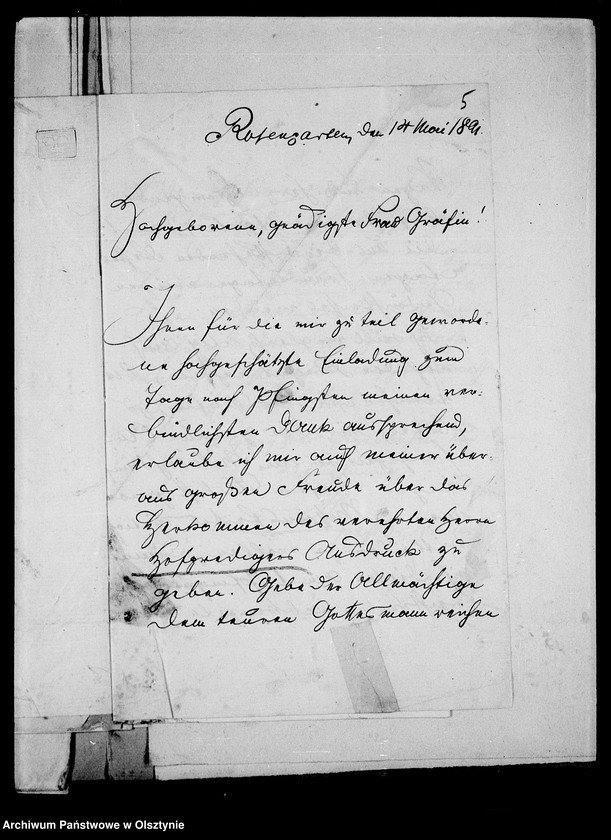 5
Rosengarten, den 14 Mai 1891.
Hochgeborene, gnädigste Frau Gräfin!
Ihnen für die mir zu teil geworde-
ne hochgeschätzte Einladung zum
Tage nach Pfingsten meinen ver-
bindlichsten Dank aussprechend,
erlaube ich mir auch meiner über-
aus großen Freude über das
Herkommen des verehrten Herrn
Hofpredigers Ausdruck zu
geben. Gebe der Allmächtige
dem teuren Gottesmann reichen
Archiwum Państwowe w Olsztynie